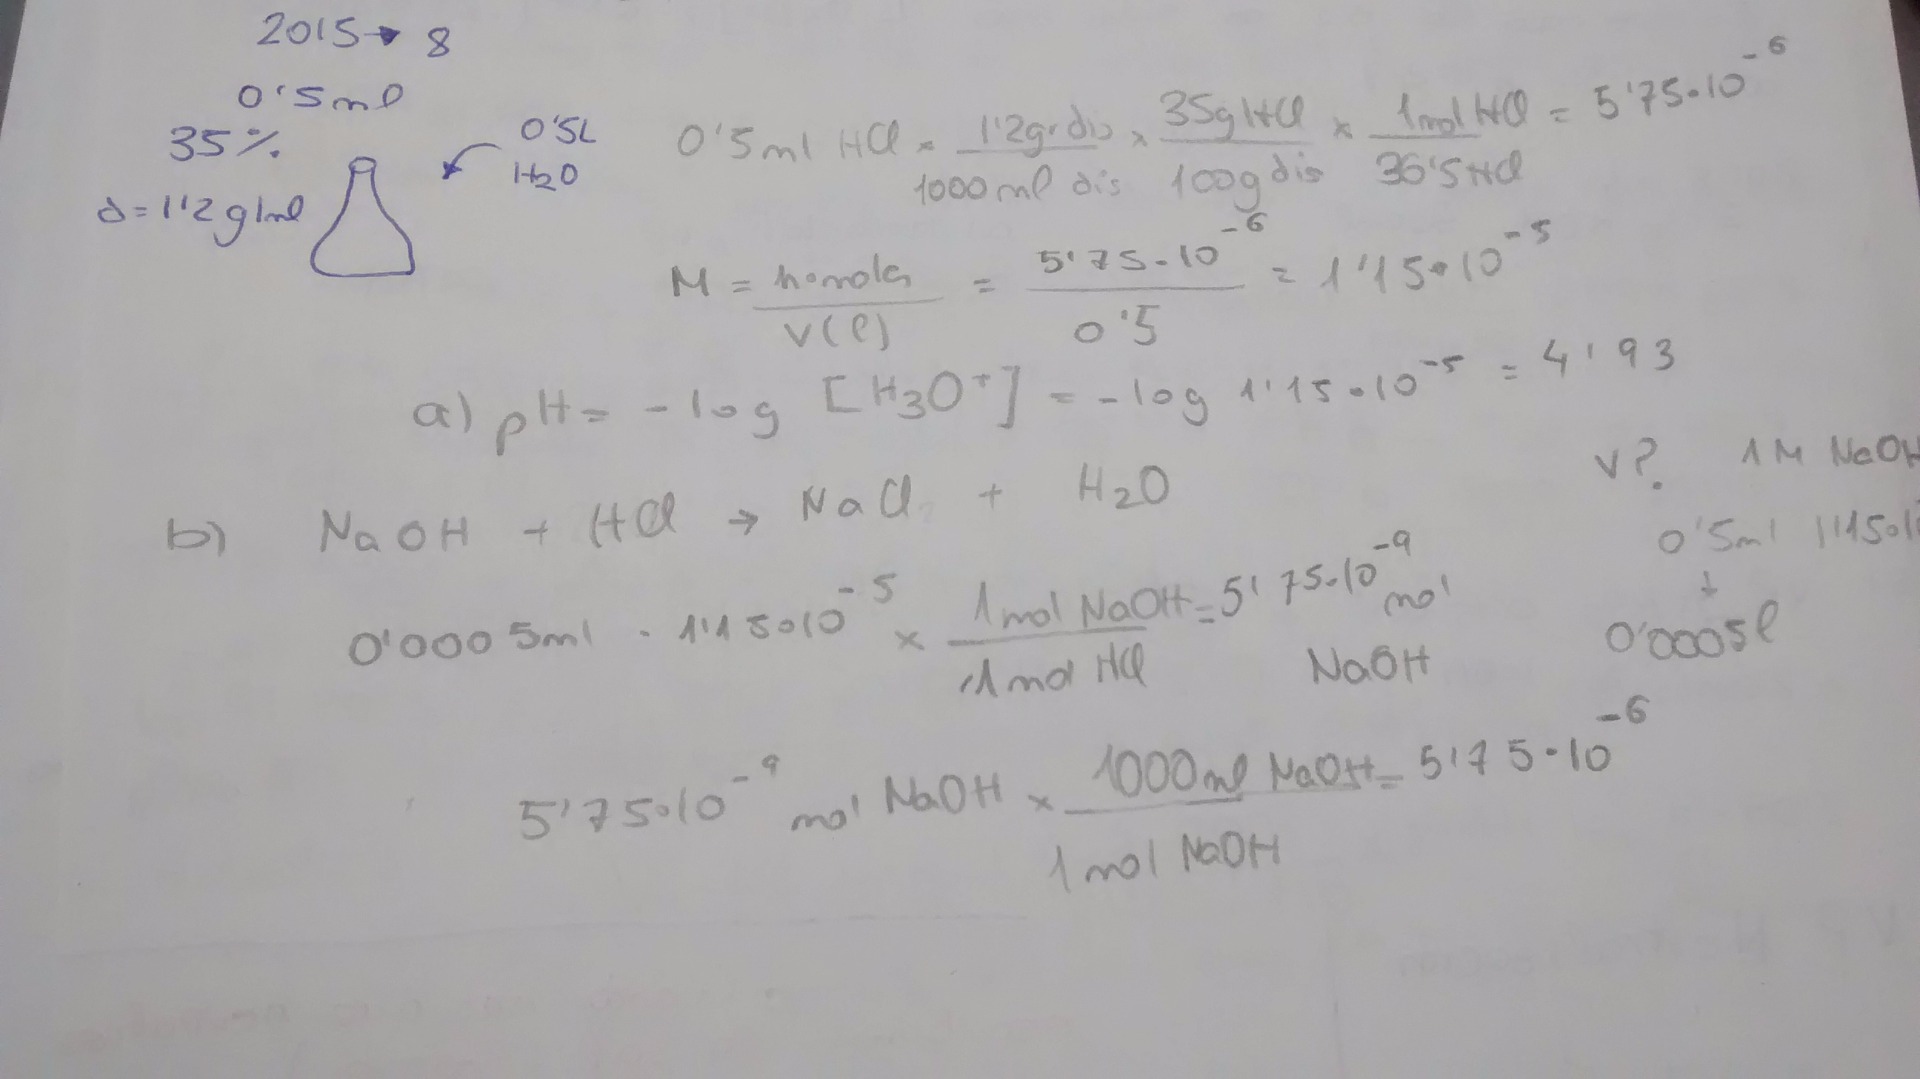 2015→ 8
0'5ml
35%.
d=1'2g/ml
0'5L
H2O
0'5ml HCl × 1'2gr dis / 1000 ml dis × 35g HCl / 100g dis × 1mol HCl / 36'5 HCl = 5'75·10^-6
M = n·moles / V(l) = 5'75·10^-6 / 0'5 = 1'15·10^-5
a) pH = -log [H3O+] = -log 1'15·10^-5 = 4'93
V?. 1M NaOH
b) NaOH + HCl → NaCl + H2O
0'5ml 1'15·1
0'0005l
0'0005ml · 1'15·10^-5 × 1mol NaOH / 1mol HCl = 5'75·10^-9 mol NaOH
5'75·10^-9 mol NaOH × 1000ml NaOH / 1mol NaOH = 5'75·10^-6